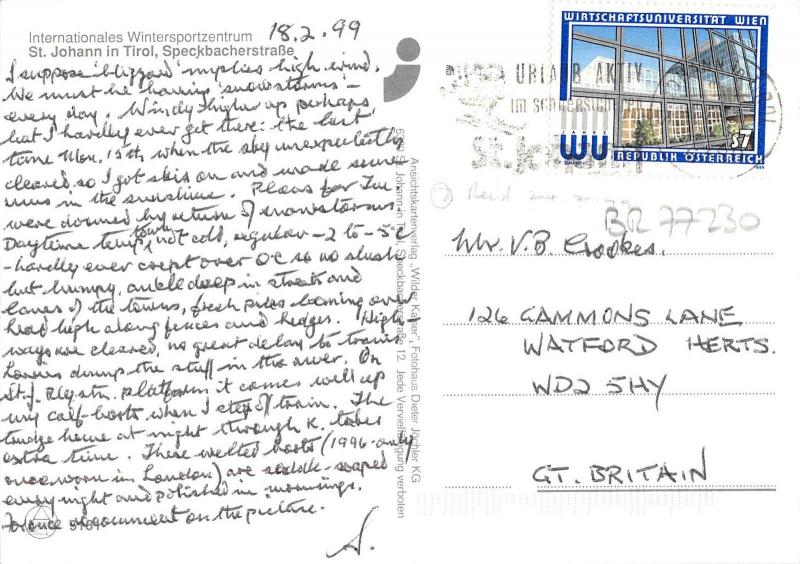 Internationales Wintersportzentrum
18.2.99
St. Johann in Tirol, Speckbacherstraße
I suppose 'blizzard' implies high wind.
We must be having 'snowstorms' -
every day. Windy higher up perhaps
but I hardly ever get there: the last
time Mon, 15th when the sky unexpectedly
cleared so I got skis on and made some
runs in the sunshine. Plans for Tue
were doomed by return of snowstorms.
Daytime temp, town, not cold, regular -2 to -5c
- hardly ever crept over 0c so no slush
but humpy, ankle deep in streets and
lanes of the towns, fresh piles looming over
head high along fences and hedges. High-
ways are cleared, no great delay to trains
Lorries dump the stuff in the river. On
St. J. Rlystn. platform it comes well up
my calf boots when I step off train. The
trudge home at night through K. takes
extra time. These welted boots (1996 - only
once worn in London) are saddle-soaped
every night and polished in mornings.
comment on the picture.
A.
Ansichtskartenverlag „Wilder Kaiser", Fotohaus Dieter Jöchler KG
6380 St. Johann in Tirol, Speckbacherstraße 12, Jede Vervielfältigung verboten
WIRTSCHAFTSUNIVERSITÄT WIEN
WU
S7
REPUBLIK ÖSTERREICH
URLAUB AKTIV
im schneesicheren
st.johann
BR 77230
Mr. V.B. Crookes.
126 GAMMONS LANE
WATFORD HERTS.
WD2 5HY
GT. BRITAIN